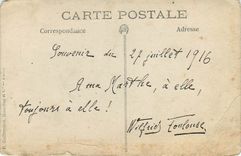 CARTE POSTALE
Correspondance
Adresse
Souvenir du 27 juillet 1916
A ma Marthe, à elle,
toujours à elle !
Wilfrid Toulouse